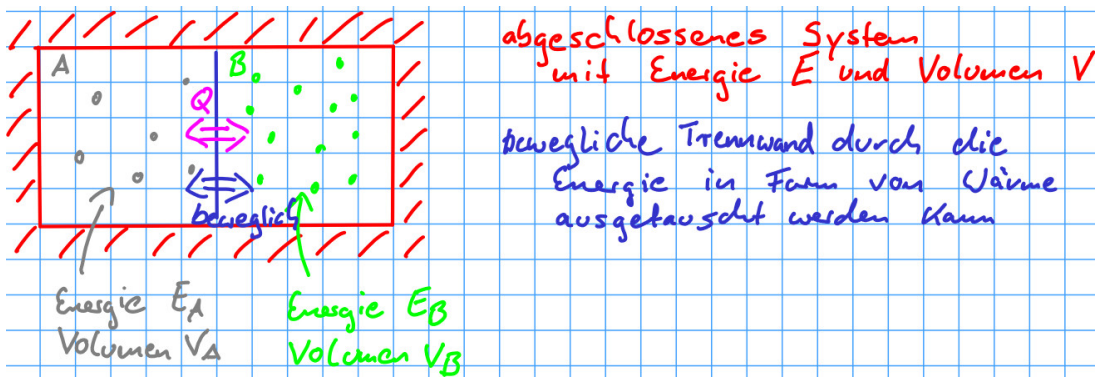 A
B
Q
beweglich
Energie E_A
Volumen V_A
Energie E_B
Volumen V_B
abgeschlossenes System
mit Energie E und Volumen V
bewegliche Trennwand durch die
Energie in Form von Wärme
ausgetauscht werden kann